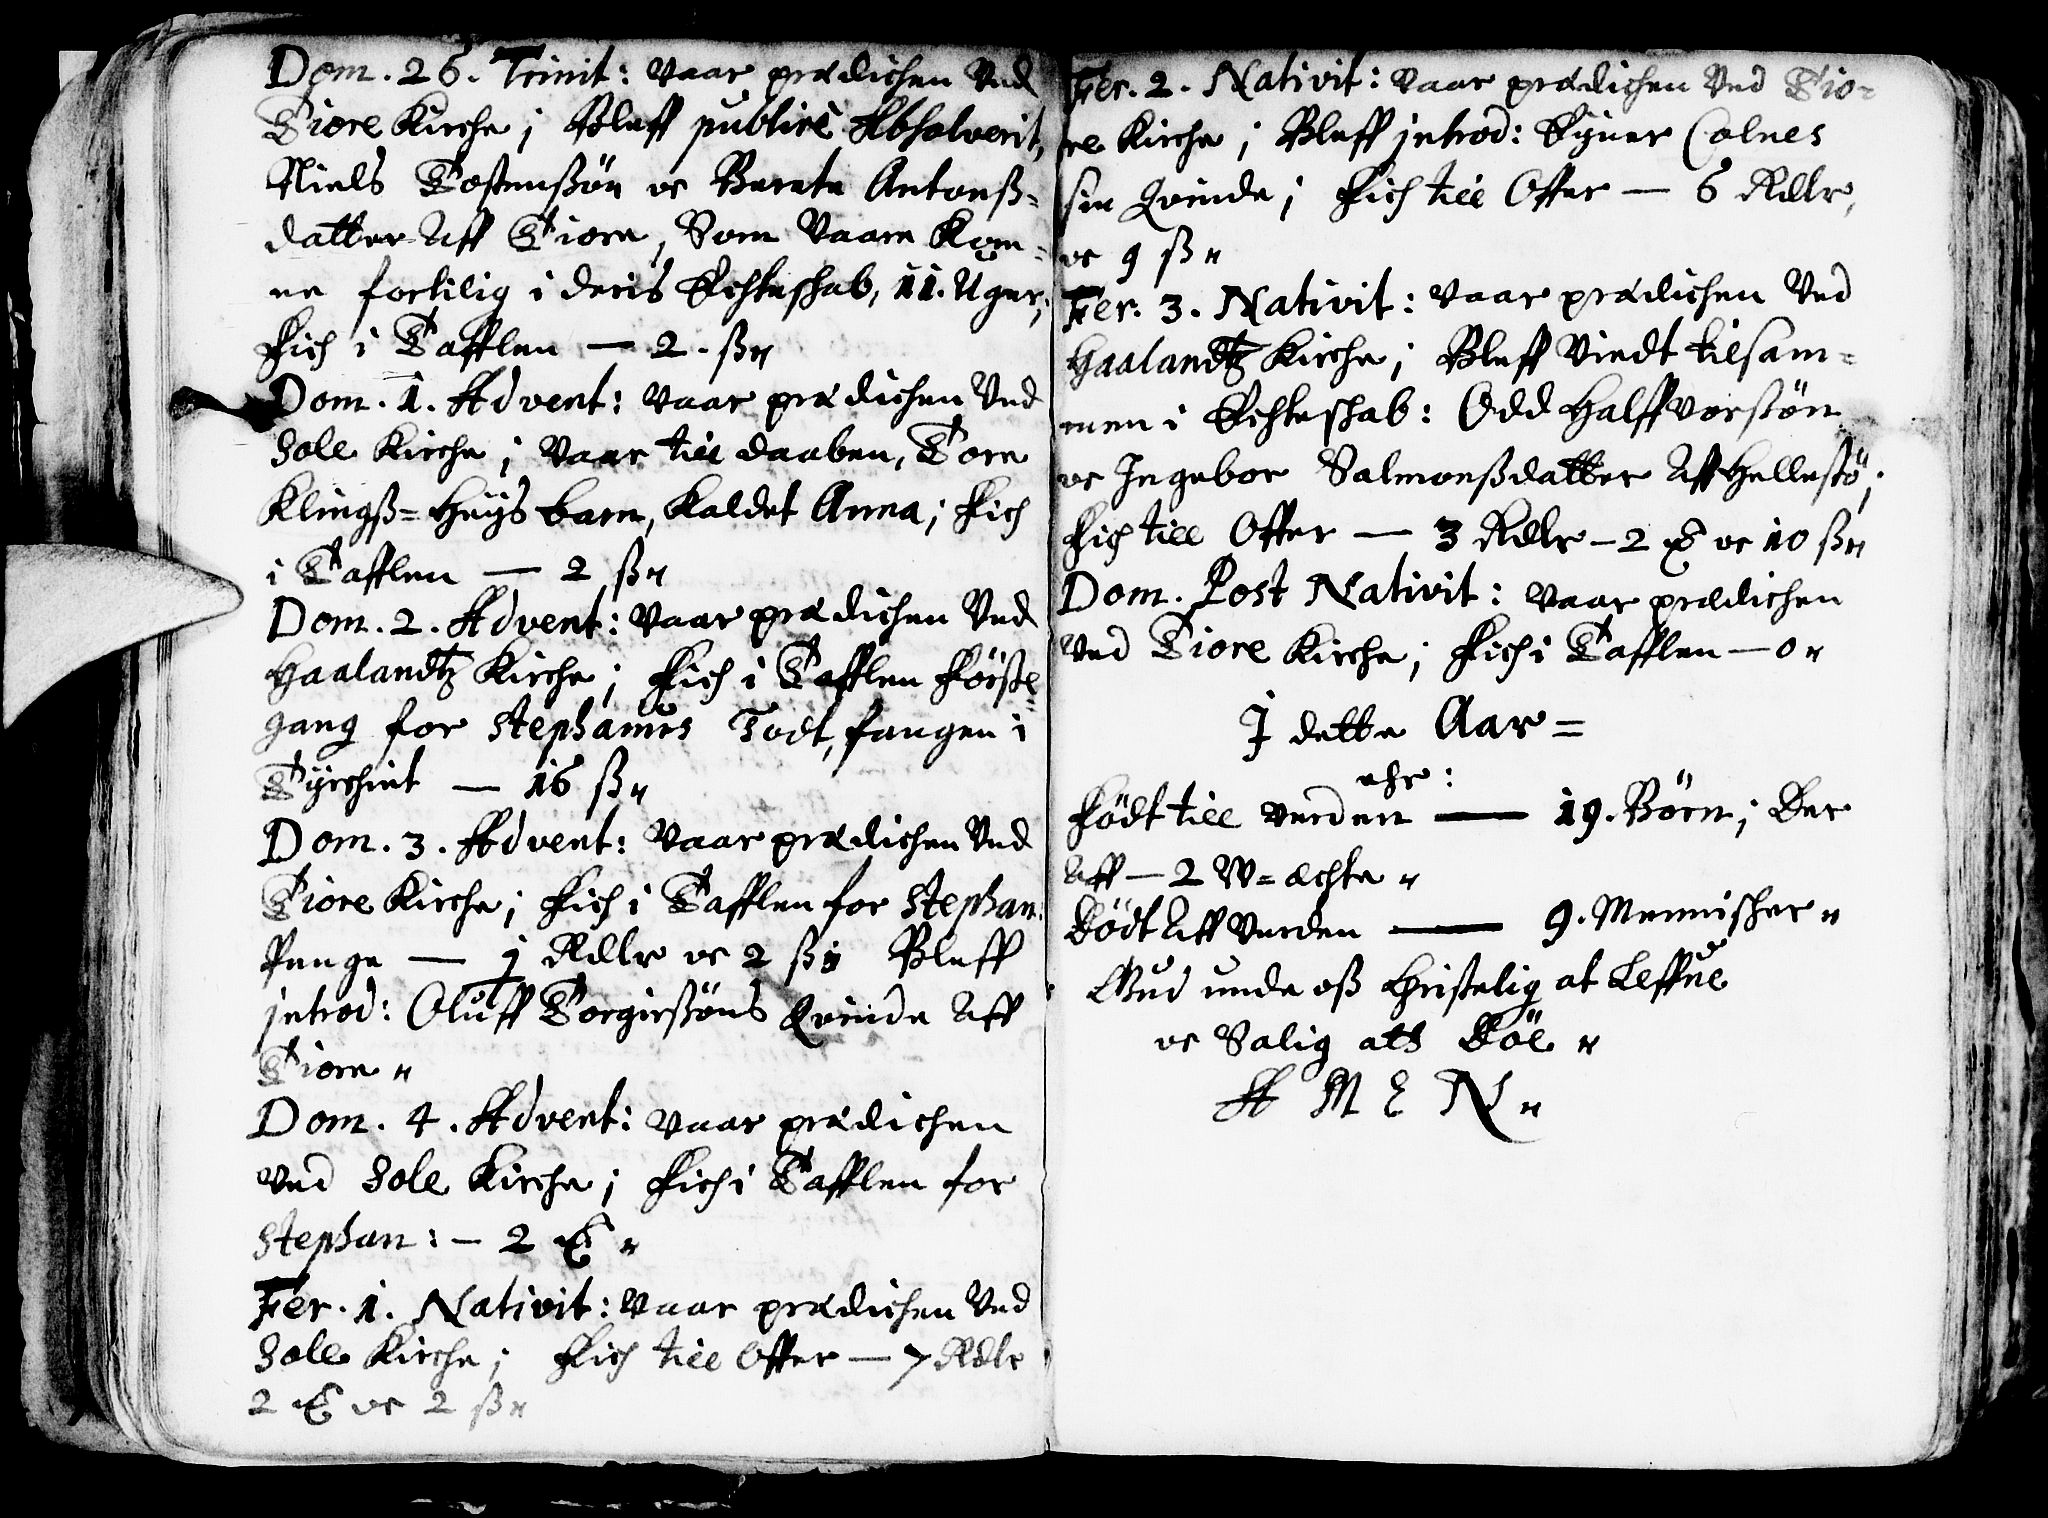 Dom. 26. Trinit: vaar prædichen Ved
Tiore Kirche; Bleff publicè Absolverit,
Niels Tostenßön oc Berete Antonß=
datter Aff Tiore, Som Vaare Kom=
ne fortilig i deris Echteschab, 11. Uger;
Fich i Tafflen — 2. ß"
Dom. 1. Advent: vaar prædichen Ved
Sole Kirche; vaar till daaben, Tore
Klingß=Huÿs barn, kaldet Anna; Fich
i Tafflen — 2 ß"
Dom. 2. Advent: vaar prædichen Ved
Haalandtz Kirche; Fich i Tafflen Förste
gang for Stephanus Todt, fangen i
Tÿrchiet — 16 ß"
Dom. 3. Advent: vaar prædichen Ved
Tiore Kirche; Fich i Tafflen for Stephan:
Penge — 1 Rdlr oc 2 ß" Bleff
introd: Oluff Torgirßöns Qvinde Aff
Tiore "
Dom. 4. Advent: vaar prædichen
ved Sole Kirche; Fich i Tafflen for
Stephan: — 2 ℔ "
Fer. 1. Nativit: vaar prædichen Ved
Sole Kirche; Fich till Offer — 7 Rdlr
2 ℔ oc 2 ß"
Fer. 2. Nativit: vaar prædichen Ved Tio=
re Kirche; Bleff introd: Eÿner Colnes
sin Qvinde; Fich till Offer — 6 Rdlr,
oc 9 ß"
Fer. 3. Nativit: vaar prædichen Ved
Haalandtz Kirche; Bleff Viedt tilsam=
men i Echteschab: Odd Halffvorßön
oc Ingebor Salmonßdatter Aff Hellestö;
Fich till Offer — 3 Rdlr — 2 ℔ oc 10 ß"
Dom. Post Nativit: vaar prædichen
ved Tiore Kirche; Fich i Tafflen — 0 "
I dette Aar =
ehr:
Födt till verden — 19. Börn; Der
Aff — 2 W=æchte "
Dödt Aff Verden — 9. Mennischer "
Gud unde oß Christelig at Leffve
oc Salig att Döe "
A M E N "